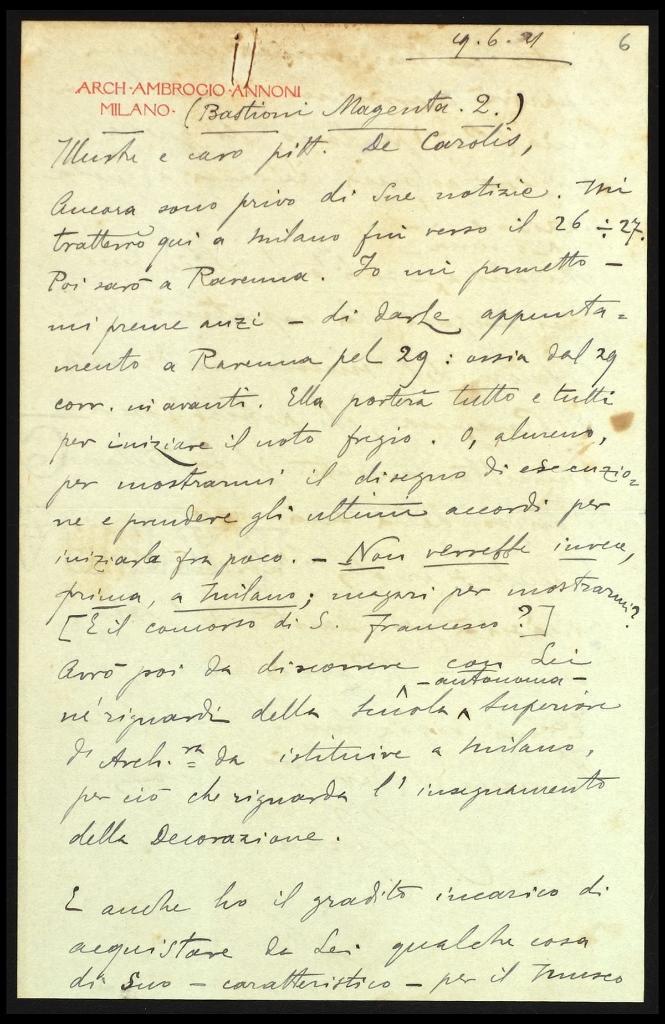 19.6.21
6
ARCH·AMBROGIO·ANNONI
MILANO· (Bastioni Magenta. 2.)
Illustre e caro pitt. De Carolis,
Ancora sono privo di Sue notizie. Mi
tratterrò qui a Milano fin verso il 26 ÷ 27.
Poi sarò a Ravenna. Io mi permetto –
mi preme anzi – di darLe appunta=
mento a Ravenna pel 29: ossia dal 29
corr. in avanti. Ella porterà tutto e tutti
per iniziare il noto fregio. O, almeno,
per mostrarmi il disegno di esecuzio=
ne e prendere gli ultimi accordi per
iniziarlo fra poco. – Non verrebbe invece,
prima, a Milano; magari per mostrarmi?
[E il concorso di S. Francesco?]
Avrò poi da discorrere con Lei
– autonoma –
nei riguardi della Scuola ^ Superiore
di Arch.ra da istituire a Milano,
per ciò che riguarda l'insegnamento
della Decorazione.
E anche ho il gradito incarico di
acquistare da Lei qualche cosa
di Suo – caratteristico – per il Museo